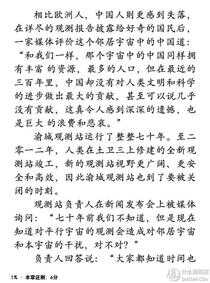 相比欧洲人，中国人则更感到失落，
在详尽的观测报告披露给好奇的国民后，
一家媒体评价这个邻居宇宙中的中国道：
“和我们一样，那个宇宙中的中国同样拥
有丰富的资源，最多的人口，但在最近的
三百年里，中国却没有对人类文明和科学
的进步做出最大的贡献，甚至可以说几乎
没有贡献，这真令人感到深深的遗憾，也
是巨大的浪费和悲哀。”
渝城观测站运行了整整七十年。至二
零一二年，人类在土卫三上修建的全新观
测站竣工，新的观测站视野更广阔、更安
全和高效，因此渝城观测站也到了要被关
闭的时刻。
观测站负责人在新闻发布会上被媒体
询问：“七十年前我们不知道，但是现在
知道对平行宇宙的观测会造成对邻居宇宙
和本宇宙的干扰，对不对？”
负责人回答说：“大家都知道时间也
1% 本章还剩：6分